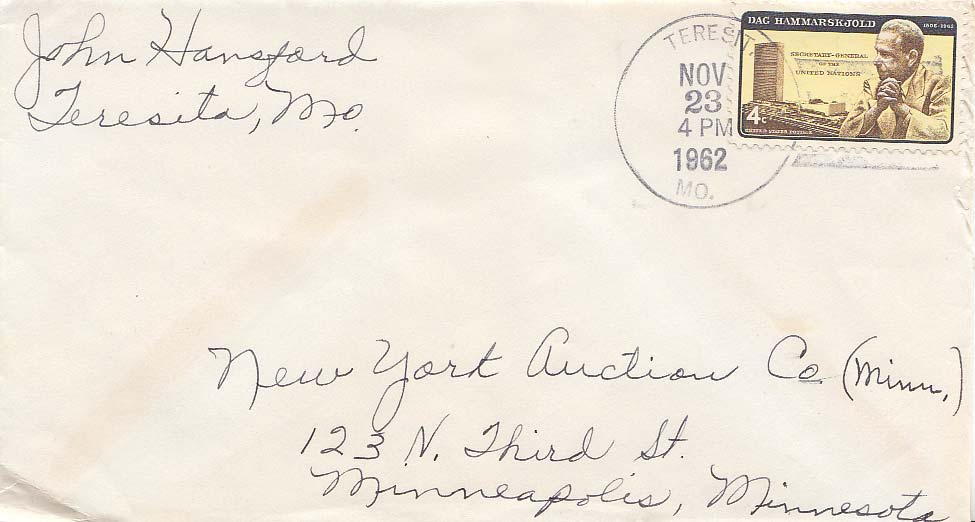 John Hansford
Teresita, Mo.
TERESIT
NOV
23
4 PM
1962
MO.
DAG HAMMARSKJOLD 1905-1961
SECRETARY-GENERAL
OF THE
UNITED NATIONS
4c
UNITED STATES POSTAGE
New York Auction Co. (Minn.)
123 N. Third St.
Minneapolis, Minnesota